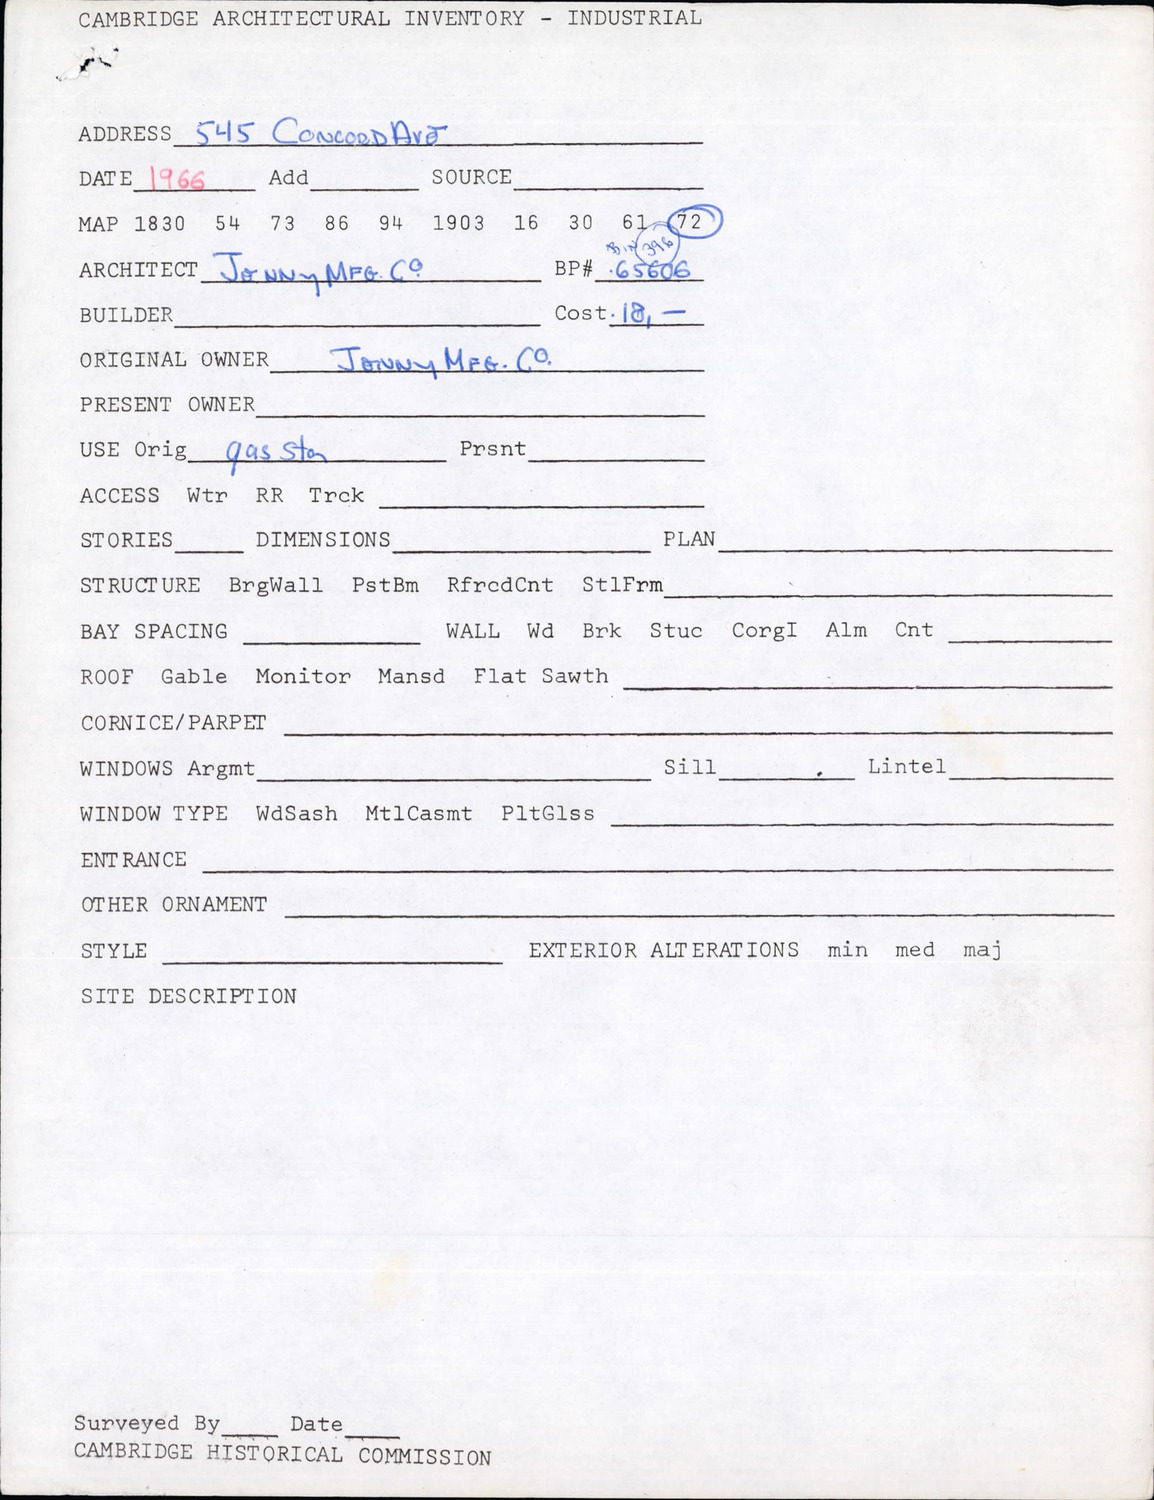 CAMBRIDGE ARCHITECTURAL INVENTORY - INDUSTRIAL
ADDRESS 545 Concord Ave
DATE 1966 Add SOURCE
MAP 1830 54 73 86 94 1903 16 30 61 72
398
ARCHITECT Jenny Mfg. Co. BP# 65606
BUILDER Cost 18,—
ORIGINAL OWNER Jenny Mfg. Co.
PRESENT OWNER
USE Orig gas sta Prsnt
ACCESS Wtr RR Trck
STORIES DIMENSIONS PLAN
STRUCTURE BrgWall PstBm RfrcdCnt StlFrm
BAY SPACING WALL Wd Brk Stuc CorgI Alm Cnt
ROOF Gable Monitor Mansd Flat Sawth
CORNICE/PARPET
WINDOWS Argmt Sill Lintel
WINDOW TYPE WdSash MtlCasmt PltGlss
ENTRANCE
OTHER ORNAMENT
STYLE EXTERIOR ALTERATIONS min med maj
SITE DESCRIPTION
Surveyed By Date
CAMBRIDGE HISTORICAL COMMISSION